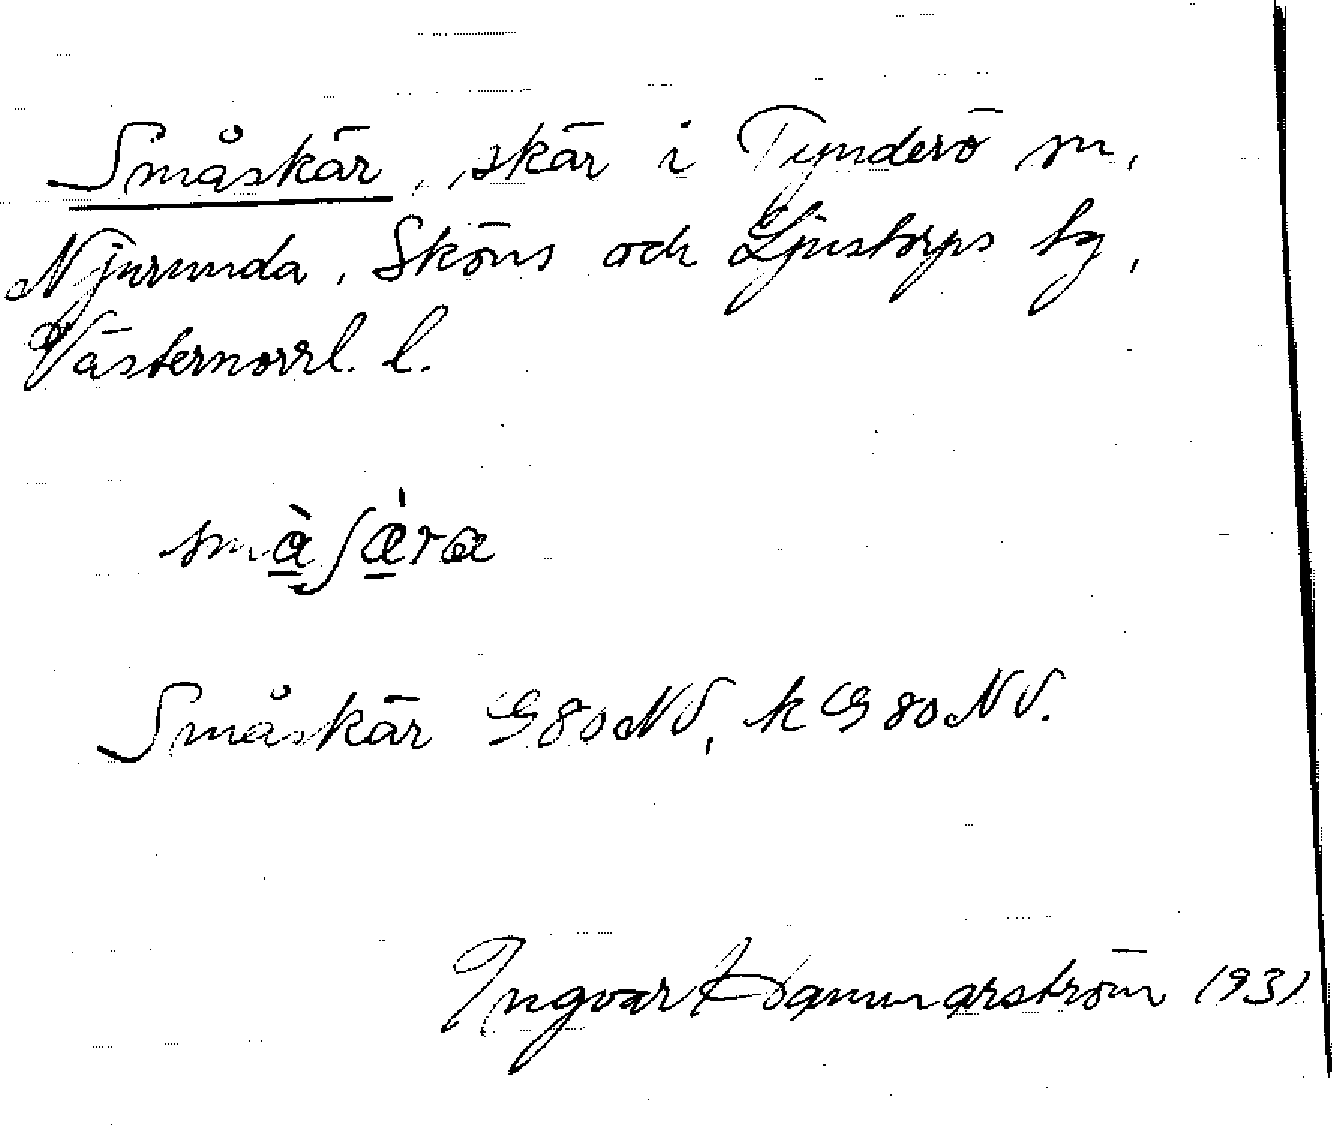 Småskär, skär i Tynderö sn,
Njurunda, Sköns och Ljustorps tg,
Västernorrl. l.
Småskär G80NV, k G80NV.
Ingvar Hammarström 1931